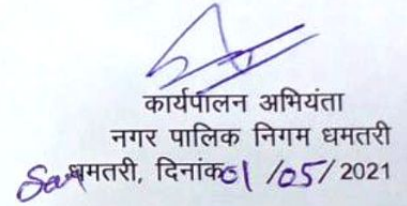 कार्यपालन अभियंता
नगर पालिक निगम धमतरी
धमतरी, दिनांक 01/05/2021